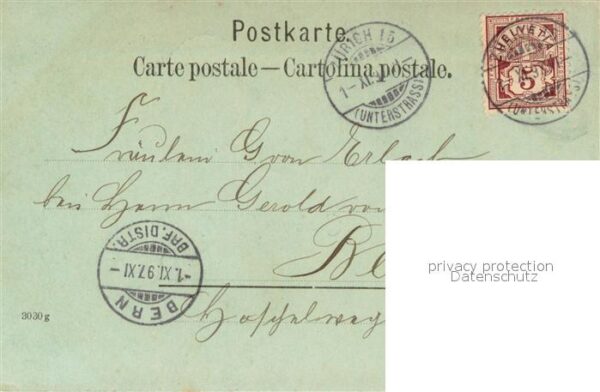 Postkarte.
Carte postale — Cartolina postale.
ZÜRICH 15
1 – XI. 9
(UNTERSTRASS)
HELVETIA
5
Fräulein G. von Erlach
bei Herrn Gerold von
Be
BRF. DISTR.
-1. XI. 97. XI -
BERN
3030 g
privacy protection
Datenschutz